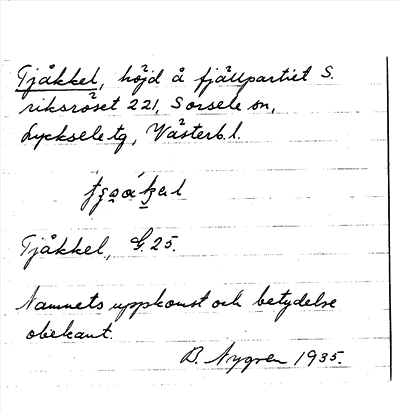 Tjåkkel, höjd å fjällpartiet S.
riksröset 221, Sorsele sn,
Lycksele tg, Västerb. l.
Tjåkkel, G 25.
Namnets uppkomst och betydelse
obekant.
B. Nygren 1935.